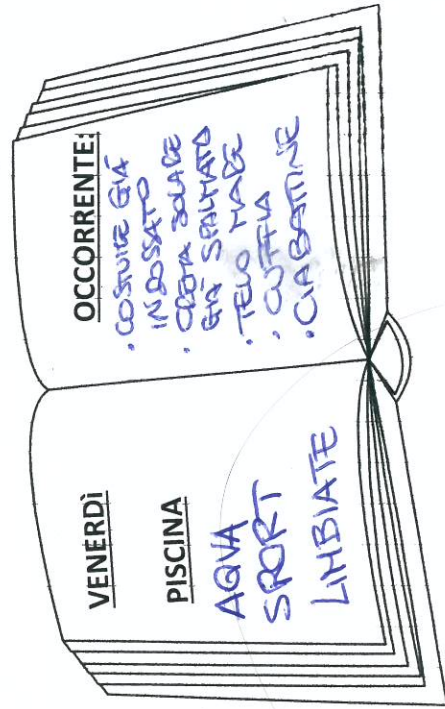 VENERDÌ
PISCINA
AQUA
SPORT
LIMBIATE
OCCORRENTE:
• COSTUME GIÀ
INDOSSATO
• CREMA SOLARE
GIÀ SPALMATA
• TELO MARE
• CUFFIA
• CIABATTINE